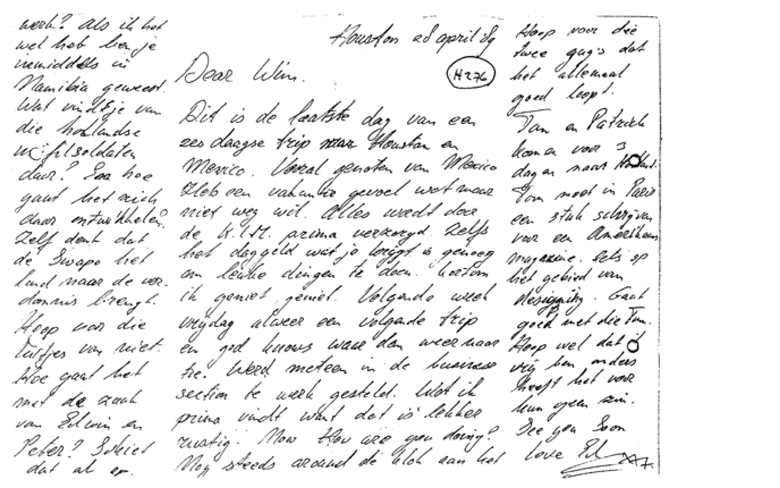 Houston 28 april 89
H276
Dear Wim.
Dit is de laatste dag van een
zesdaagse trip naar Houston en
Mexico. Vooral genoten van Mexico
Heb een vakantie gevoel wat maar
niet weg wil. Alles wordt door
de K.L.M. prima verzorgd. Zelfs
het daggeld wat je krijgt is genoeg
om leuke dingen te doen. Kortom
ik geniet, geniet. Volgende week
vrijdag alweer een volgende trip
en god knows waar dan weer naar
toe. Werd meteen in de business
section te werk gesteld. Wat ik
prima vindt want dat is lekker
rustig. Now How are you doing?
Nog steeds around de klok aan het
werk? Als ik het
wel heb ben je
inmiddels in
Namibia geweest.
Wat vindt je van
die hollandse
soldaten
daar? En hoe
gaat het zich
daar ontwikkelen?
Zelf denk dat
de Swapo het
land naar de ver-
dommis brengt.
Hoop voor die
luitjes van niet.
Hoe gaat het
met de zaak
van Edwin en
Peter? Schiet
dat al op.
Hoop voor die
twee guy's dat
het allemaal
goed loopt.
Tom en Patrick
komen voor 3
dagen naar Holland.
Tom moet in Parijs
een stuk schrijven
voor een Amerikaans
magazine. Iets op
het gebied van
designing. Gaat
goed met die Tom.
Hoop wel dat ik
vrij ben anders
heeft het voor
hun geen zin.
See you Soon
love